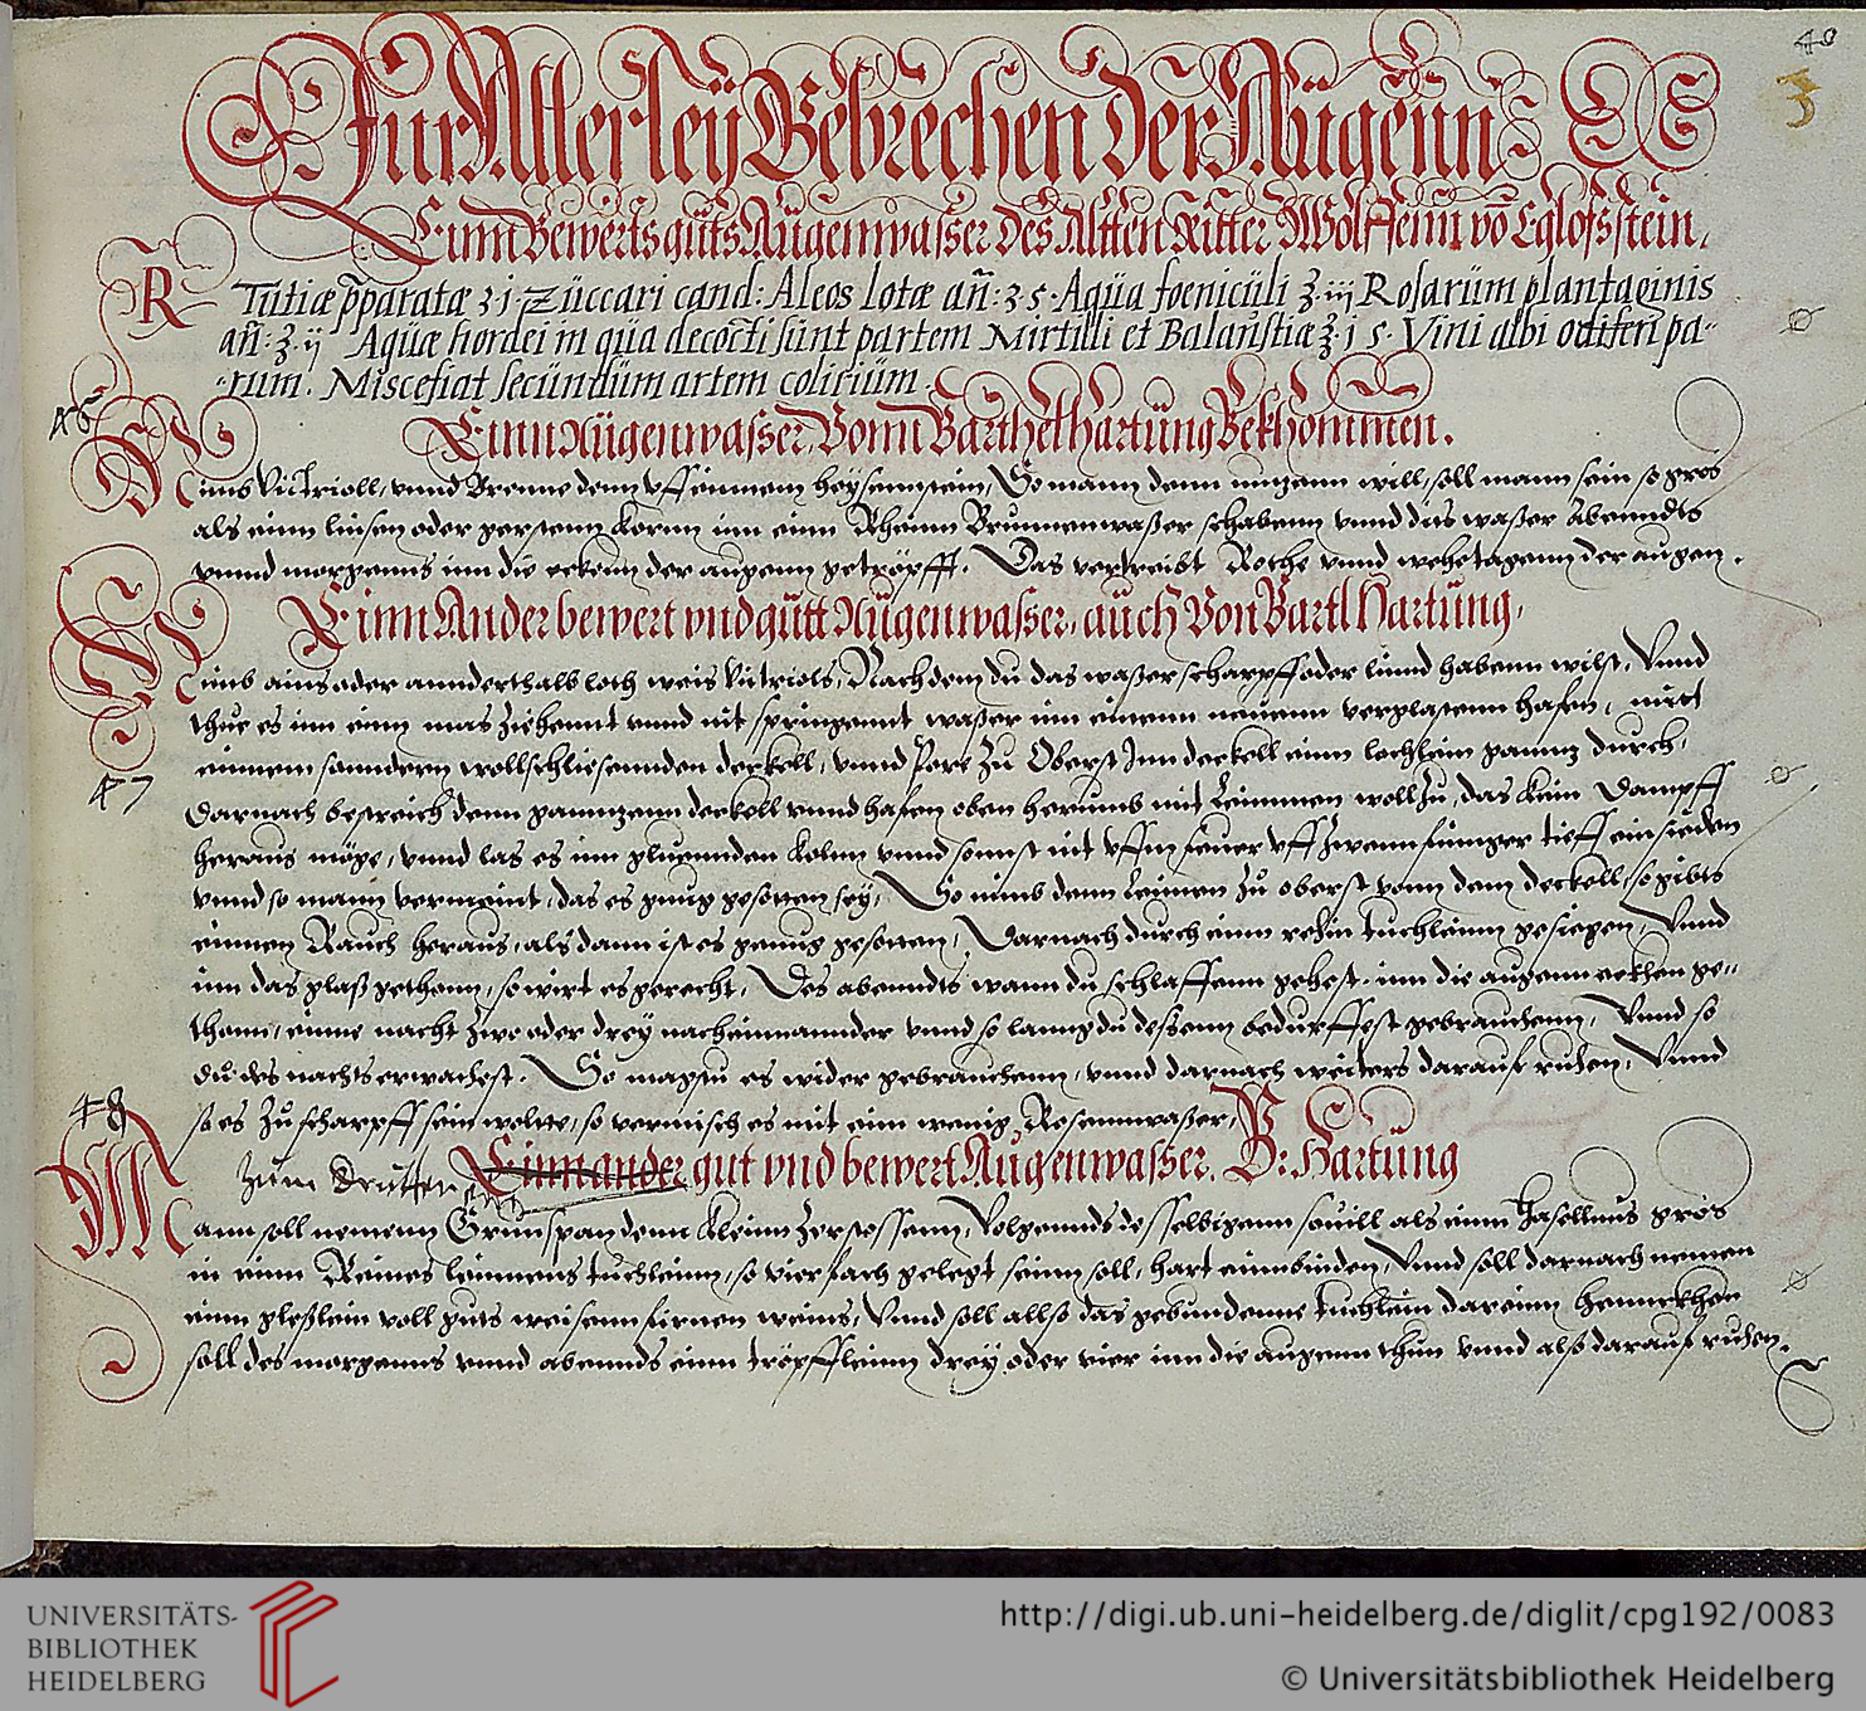 40
3
Für Allerley Gebrechen der Augenn
Einn Bewerts guts Augenwasser des Altten Ritter Wolffenn vō Eglofsstein,
R Tutiæ p̄paratæ ʒ.j. Zuccari cand: Aleos lotæ añ: ʒ.s. Aqua foeniculi ℥.iij Rosarum plantaginis
añ: ℥.ij Aquæ hordei in qua decocti sunt partem Mirtilli et Balaustiæ ℥.j s. Vini albi odiferi pa-
-rum. Misce fiat secundum artem colirium.
46
Einn Augenwasser, Vonn Barthel Hartung Bekhommen.
Nimb Victrioll, vnnd Brenne denn vff einnem heysennstein, So mann denn nuzenn will, soll mann sein so gros
als einn linsen oder gerstenn kornn inn einn Rheinn Brunnenwaßer schabenn vnnd dits waßer Abenndts
vnnd morgenns inn die eckenn der augenn getröpfft. Das vertreibt Rothe vnnd wehetagenn der augen.
Einn Ander bewert vnd gutt Augenwasser, auch Von Bartl Hartung,
Nimb ains oder annderthalb loth weis Victriols, Nach dem du das waßer scharpff oder linnd habenn wilst, Vnnd
thue es inn einn mas Ziehennt vnnd nit springennt waßer inn einenn neuenn verglastenn hafen, mitt
einnem sonndern wollschliesennden deckell, vnnd Pore Zu Oberst Inn deckell einn lochlein gannz durch,
47
Darnach bestreich denn gannzenn deckell vnnd hafen oben herumb mit Leimmen woll Zu, das kein Dampff
heraus möge, vnnd las es inn gluennden kolnn vnnd sonnst nit vffm feuer vff Zwenn finnger tieff einsieden
vnnd so mann vermeint, das es gnug gesotten sey, So nimb denn Leimen Zu oberst vonn dem deckell, so gibts
einnen Rauch heraus, als dann ist es genug gesotten, Darnach durch einn rein tuchleinn gesiegen, Vnnd
inn das glaß gethonn, so wirt es gerecht. Des abenndts wann du schlaffenn gehest, inn die augenn eckhen ge-
thonn, einne nacht Zwo oder drey nacheinnannder vnnd so lanng du dessenn bedurffest gebrauchenn, Vnnd so
du des nachts erwachest. So magstu es wider gebrauchenn, vnnd darnach weiters darauf ruhen, Vnnd
so es Zu scharpff sein wolte, so vermisch es mit einn wenig Rosennwaßer,
48
Zum dritten Einn ander gut vnd bewert Augenwasser. B: Hartung
Mann soll nemenn Grunspan denn kleinn Zerstossenn, Volgennds desselbigenn souill als einn Haselnus gros
in einn Reines leinnens tuchleinn, so vierfach gelegt seinn soll, hart einnbinden, Vnnd soll darnach nemen
einn gleßlein voll guts weisenn firnen weins, Vnnd soll allso das gebundenne tuchlein dareinn henneckhen
soll des morgenns vnnd abennds einn tröpffleinn drey oder vier inn die augenn thun vnnd also darauf ruhen.
UNIVERSITÄTS-
BIBLIOTHEK
HEIDELBERG
http://digi.ub.uni-heidelberg.de/diglit/cpg192/0083
© Universitätsbibliothek Heidelberg